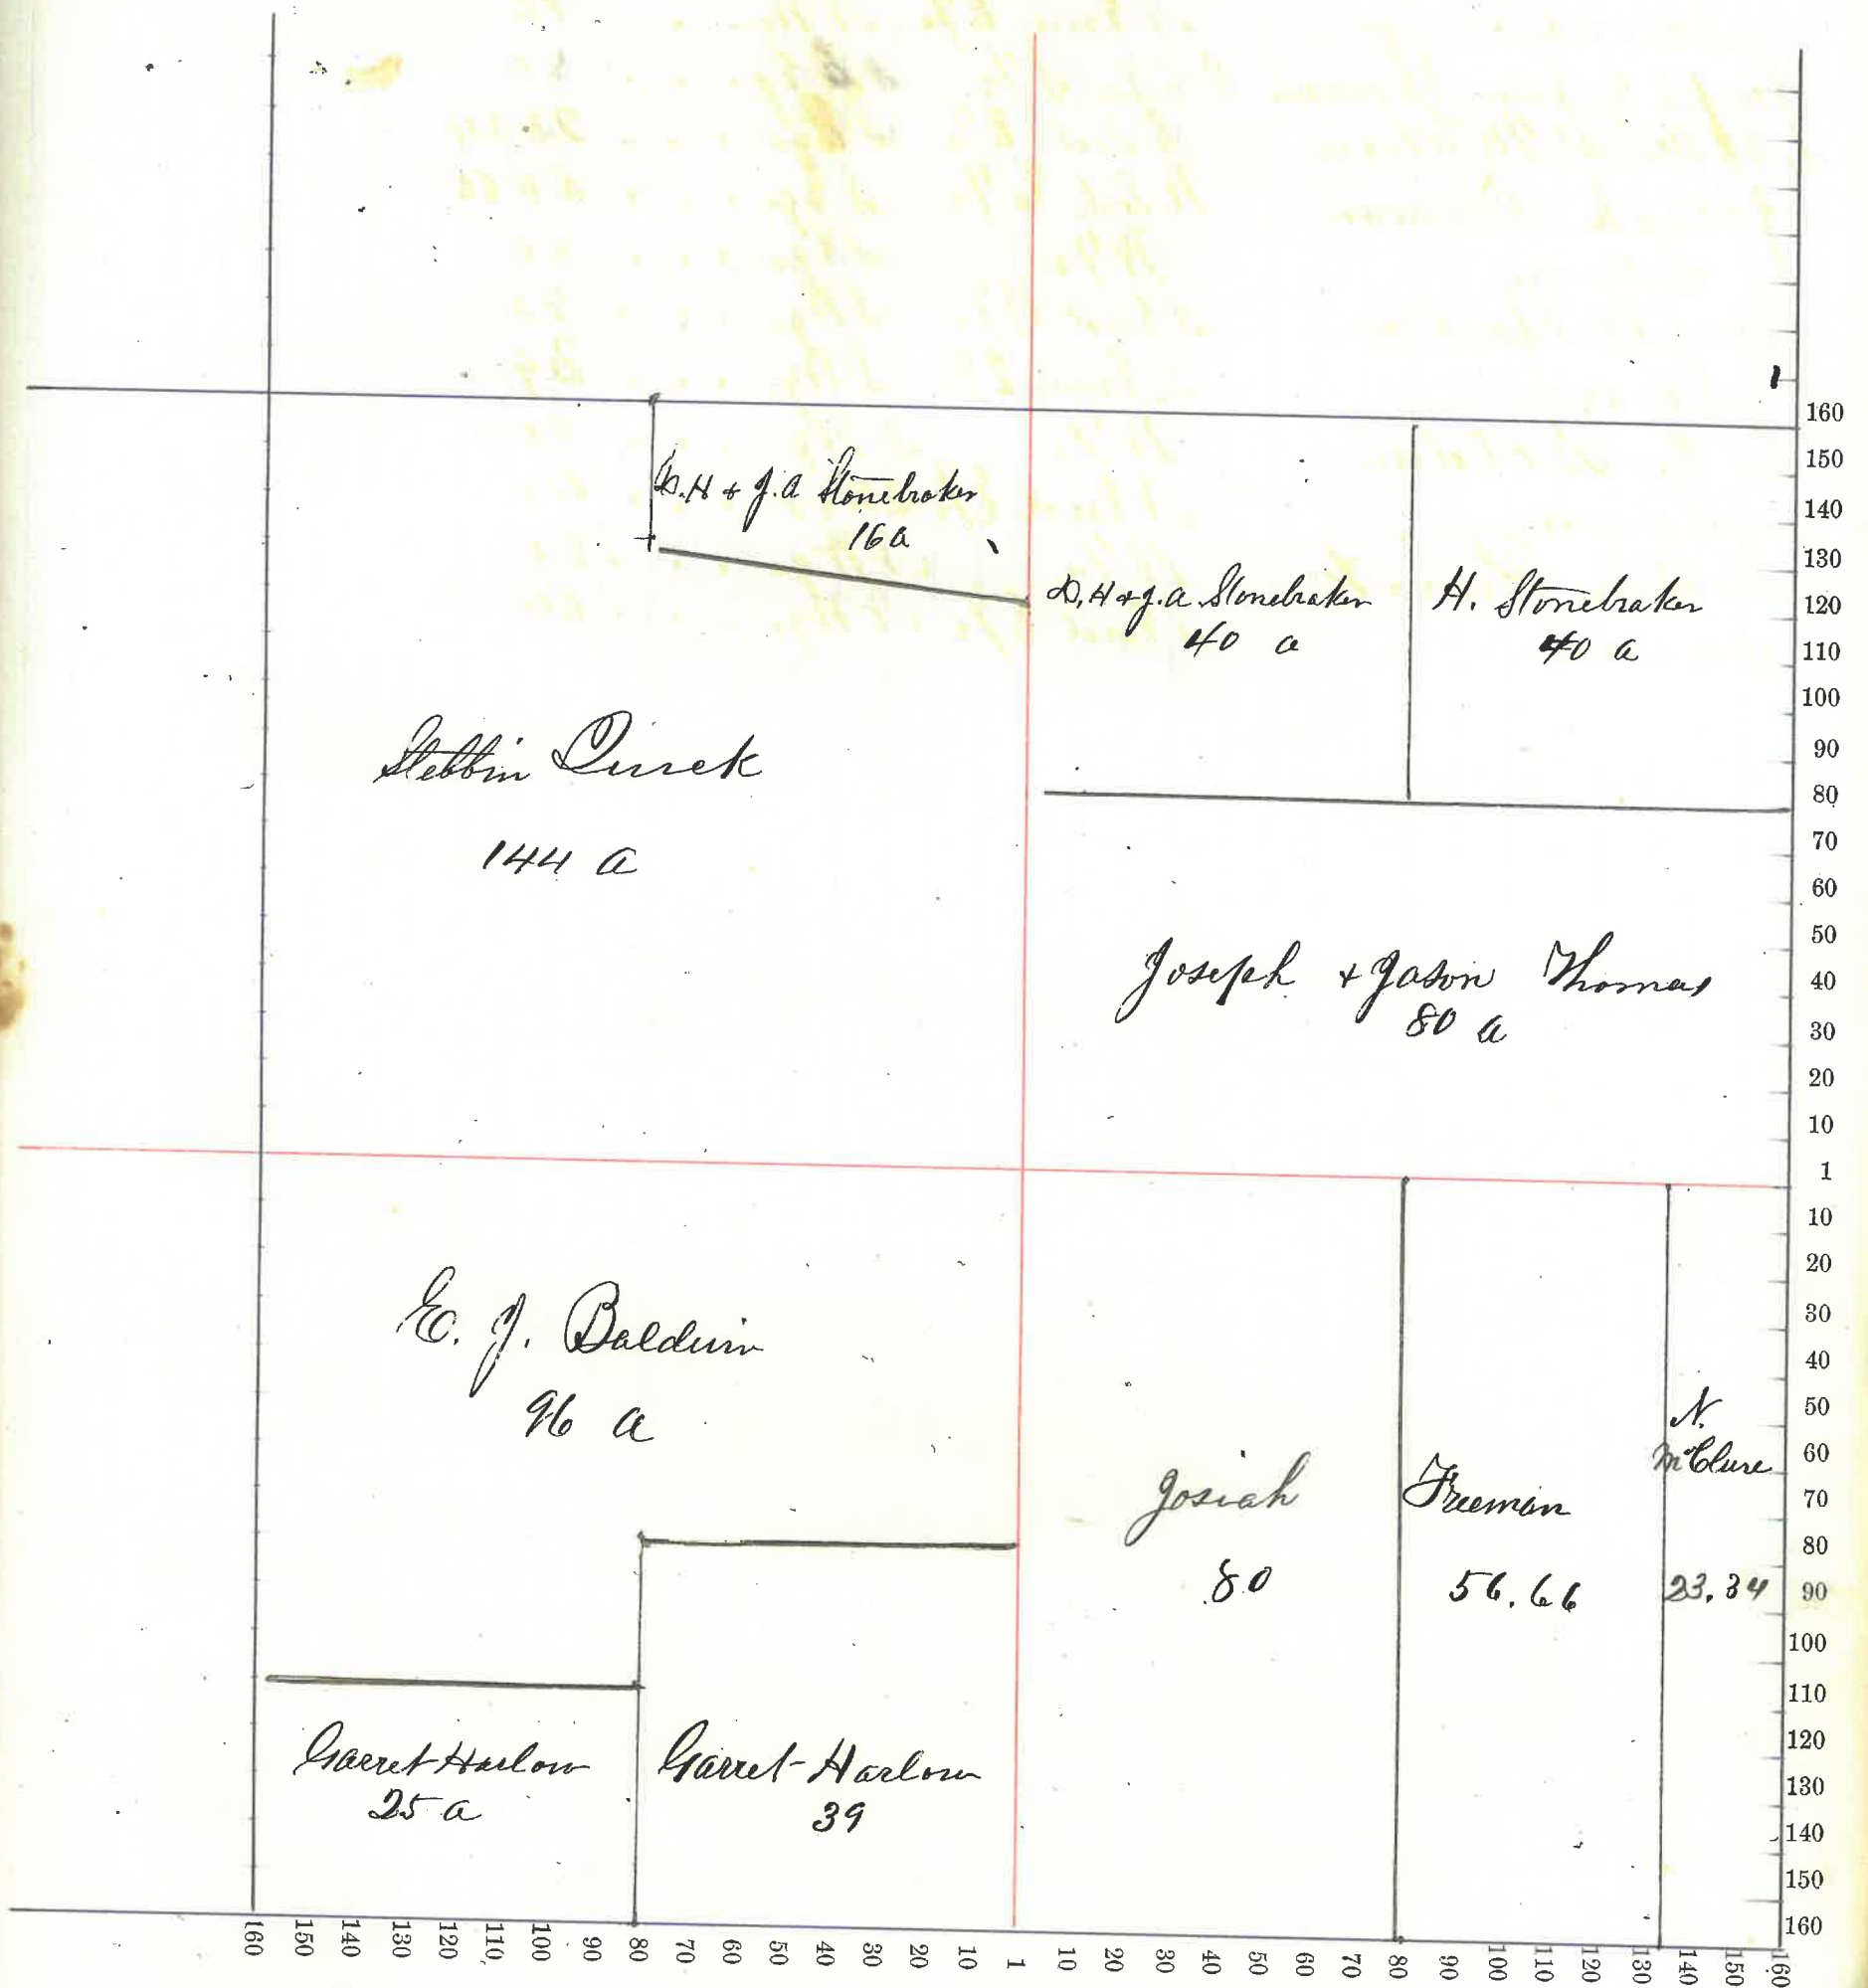 D.H & J.A Stonebraker
16 a
D,H & J.A. Stonebraker
40 a
H. Stonebraker
40 a
Stebbin
144 a
Joseph & Jason Thomas
80 a
E. J. Baldwin
96 a
Josiah
80
Freeman
56.66
N.
McClure
23.34
Garret Harlow
25 a
Garret Harlow
39
160
150
140
130
120
110
100
90
80
70
60
50
40
30
20
10
1
10
20
30
40
50
60
70
80
90
100
110
120
130
140
150
160
160 150 140 130 120 110 100 90 80 70 60 50 40 30 20 10 1 10 20 30 40 50 60 70 80 90 100 110 120 130 140 150 160